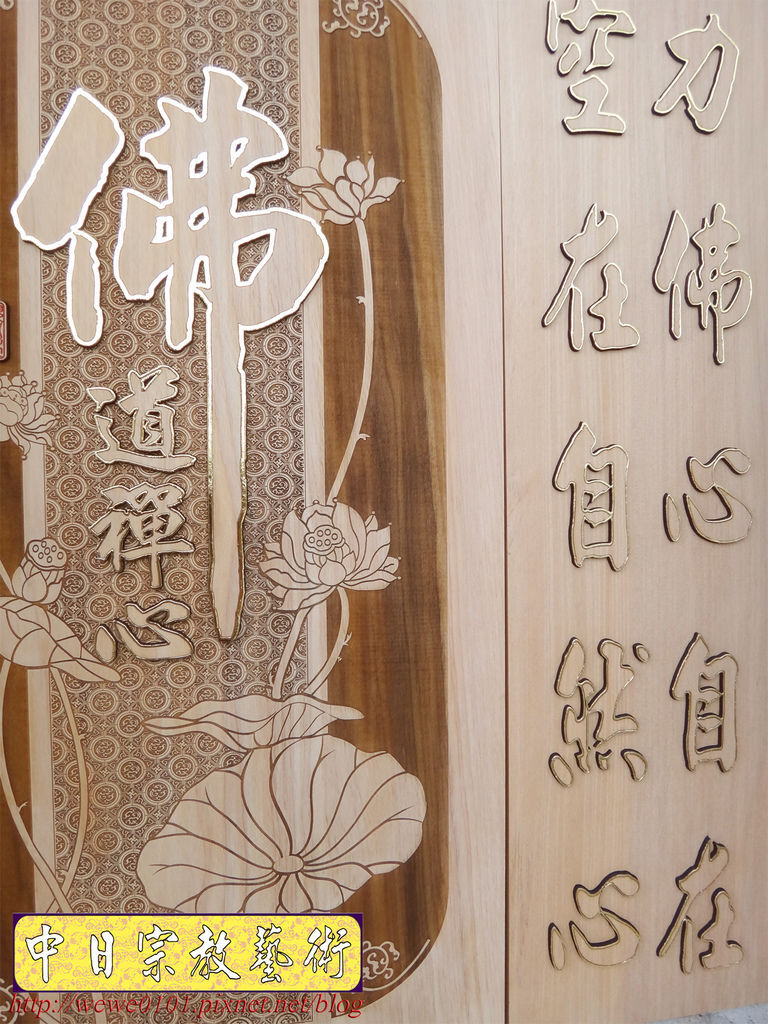 力佛心自在
空在自然心
佛
道禪心
中日宗教藝術
http://wewe0101.pixnet.net/blog